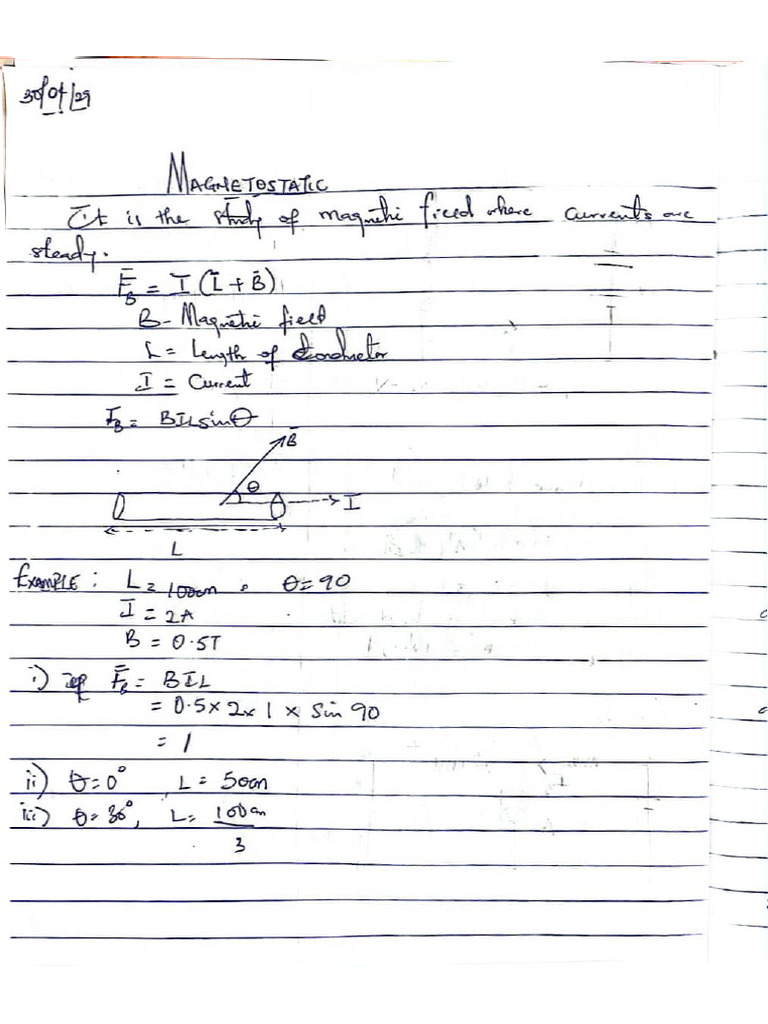 30/04/29
MAGNETOSTATIC
It is the study of magnetic field where currents are
steady.
F̄_B = I (L̄ + B̄)
B - Magnetic field
L = Length of Conductor
I = Current
F_B = BILsinθ
B̄
θ
I
L
EXAMPLE: L = 100cm, θ=90
I = 2A
B = 0.5T
i) F̄_B = BIL
= 0.5 x 2 x 1 x Sin 90
= 1
ii) θ=0°, L = 50cm
iii) θ=30°, L= 100cm
3